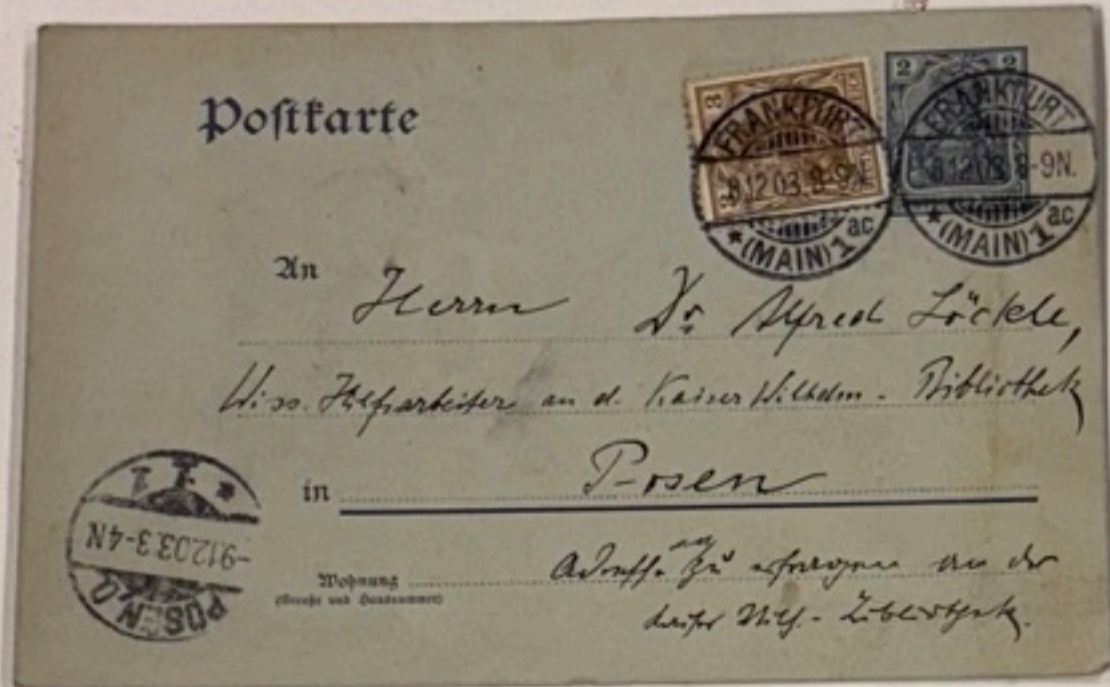 Postkarte
3 3
2 2
FRANKFURT
8.12.03.8-9N.
*(MAIN) 1 ac
FRANKFURT
8.12.03.8-9N.
*(MAIN) 1 ac
An Herrn Dr. Alfred Löckle,
Wiss. Hilfsarbeiter an d. Kaiser Wilhelm - Bibliothek
in Posen
Wohnung
(Straße und Hausnummer)
Adresse zu erfragen an der
Kaiser Wilh. - Bibliothek.
POSEN O
-9.12.03.3-4N
* 1 z